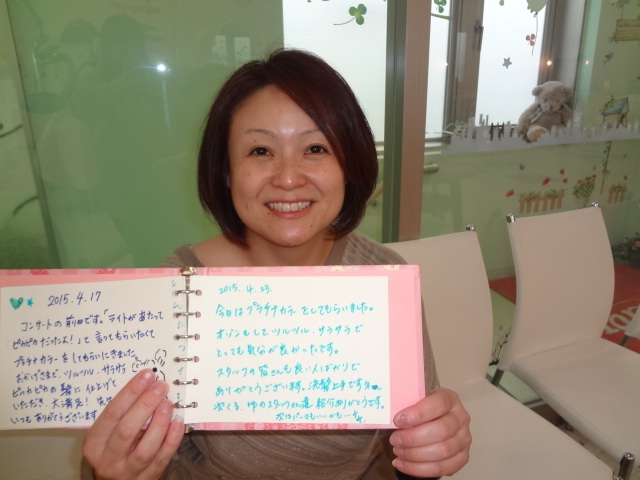 2015.4.17
コンサートの前日です。「ライトがあたって
ピカピカだったよ!」と言ってもらいたくて
プラチナカラーをしてもらいにきました。
おかげさまで、ツルツル、サラサラ
ピッカピカの髪に仕上げて
いただき、大満足!
いつもありがとうございます
2015.4.23.
今日はプラチナカラーをしてもらいました。
オゾンもしてツルツル、サラサラで
とっても気分が良かったです。
スタッフの皆さんも良い人ばかりで
ありがとうございます。洗髪上手ですネ。
次くる、ゆのスタッフさん達
ありがとうです。